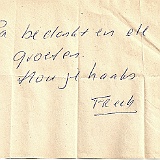 bedankt en de
groeten.
Hou je haaks
Freek